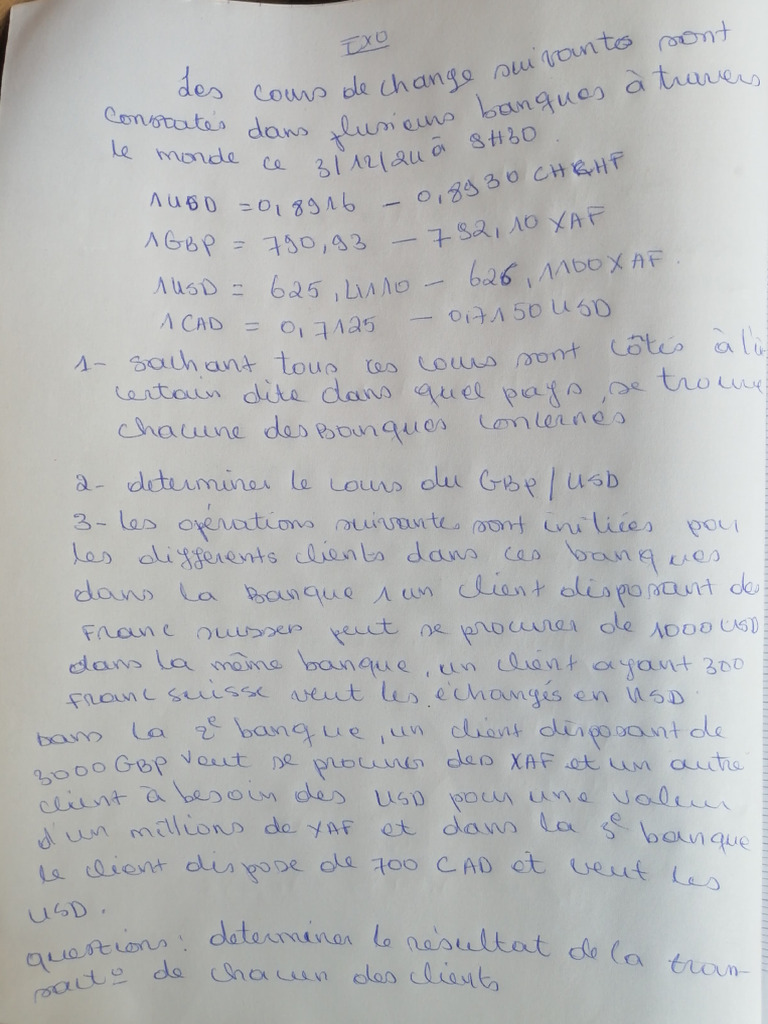 EXO
Les cours de change suivantes sont
constatés dans plusieurs banques à travers
le monde ce 3/12/24 à 8H30
1USD = 0,8916 - 0,8930 CHF
1GBP = 790,93 - 792,10 XAF
1USD = 625,4110 - 626,1100 XAF.
1CAD = 0,7125 - 0,7150 USD
1- sachant tous ces cours sont côtés à l'in
certain dite dans quel pays se trouve
chacune des banques concernés
2- determiner le cours du GBP/USD
3- les opérations suivantes sont initiées pour
les differents clients dans ces banques
dans la Banque 1 un client disposant de
Franc suisses veut se procurer de 1000 USD
dans la même banque, un client ayant 300
Franc suisse veut les échangés en USD.
Dans la 2e banque, un client disposant de
3000 GBP veut se procurer des XAF et un autre
client à besoin des USD pour une valeur
d'un millions de XAF et dans la 3e banque
le client dispose de 700 CAD et veut les
USD.
questions: determiner le résultat de la tran-
sact° de chacun des clients